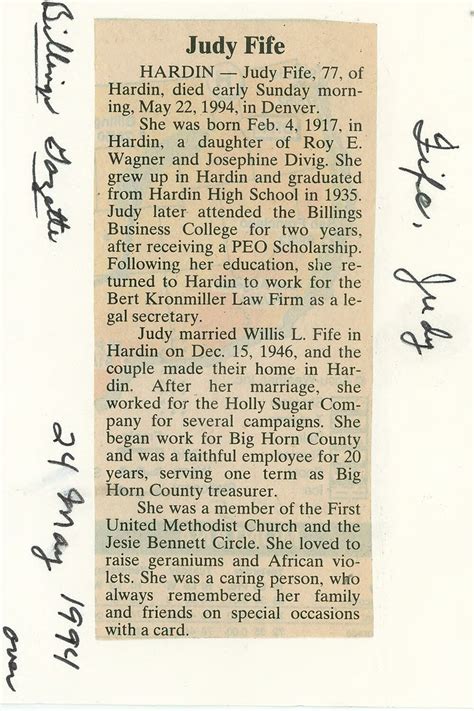 Judy Fife
HARDIN — Judy Fife, 77, of
Hardin, died early Sunday morn-
ing, May 22, 1994, in Denver.
She was born Feb. 4, 1917, in
Hardin, a daughter of Roy E.
Wagner and Josephine Divig. She
grew up in Hardin and graduated
from Hardin High School in 1935.
Judy later attended the Billings
Business College for two years,
after receiving a PEO Scholarship.
Following her education, she re-
turned to Hardin to work for the
Bert Kronmiller Law Firm as a le-
gal secretary.
Judy married Willis L. Fife in
Hardin on Dec. 15, 1946, and the
couple made their home in Har-
din. After her marriage, she
worked for the Holly Sugar Com-
pany for several campaigns. She
began work for Big Horn County
and was a faithful employee for 20
years, serving one term as Big
Horn County treasurer.
She was a member of the First
United Methodist Church and the
Jesie Bennett Circle. She loved to
raise geraniums and African vio-
lets. She was a caring person, who
always remembered her family
and friends on special occasions
with a card.
Billings Gazette
24 May 1994
over
Fife, Judy